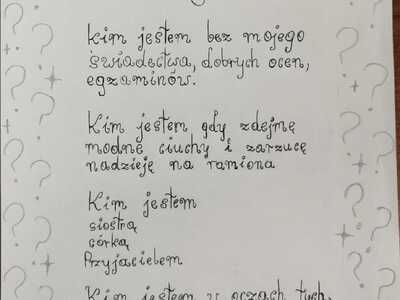 Kim jestem bez mojego
świadectwa, dobrych ocen,
egzaminów.
Kim jestem gdy zdejmę
modne ciuchy i zarzucę
nadzieję na ramiona
Kim jestem
siostrą
córką
Przyjacielem
Kim jestem w oczach tych,